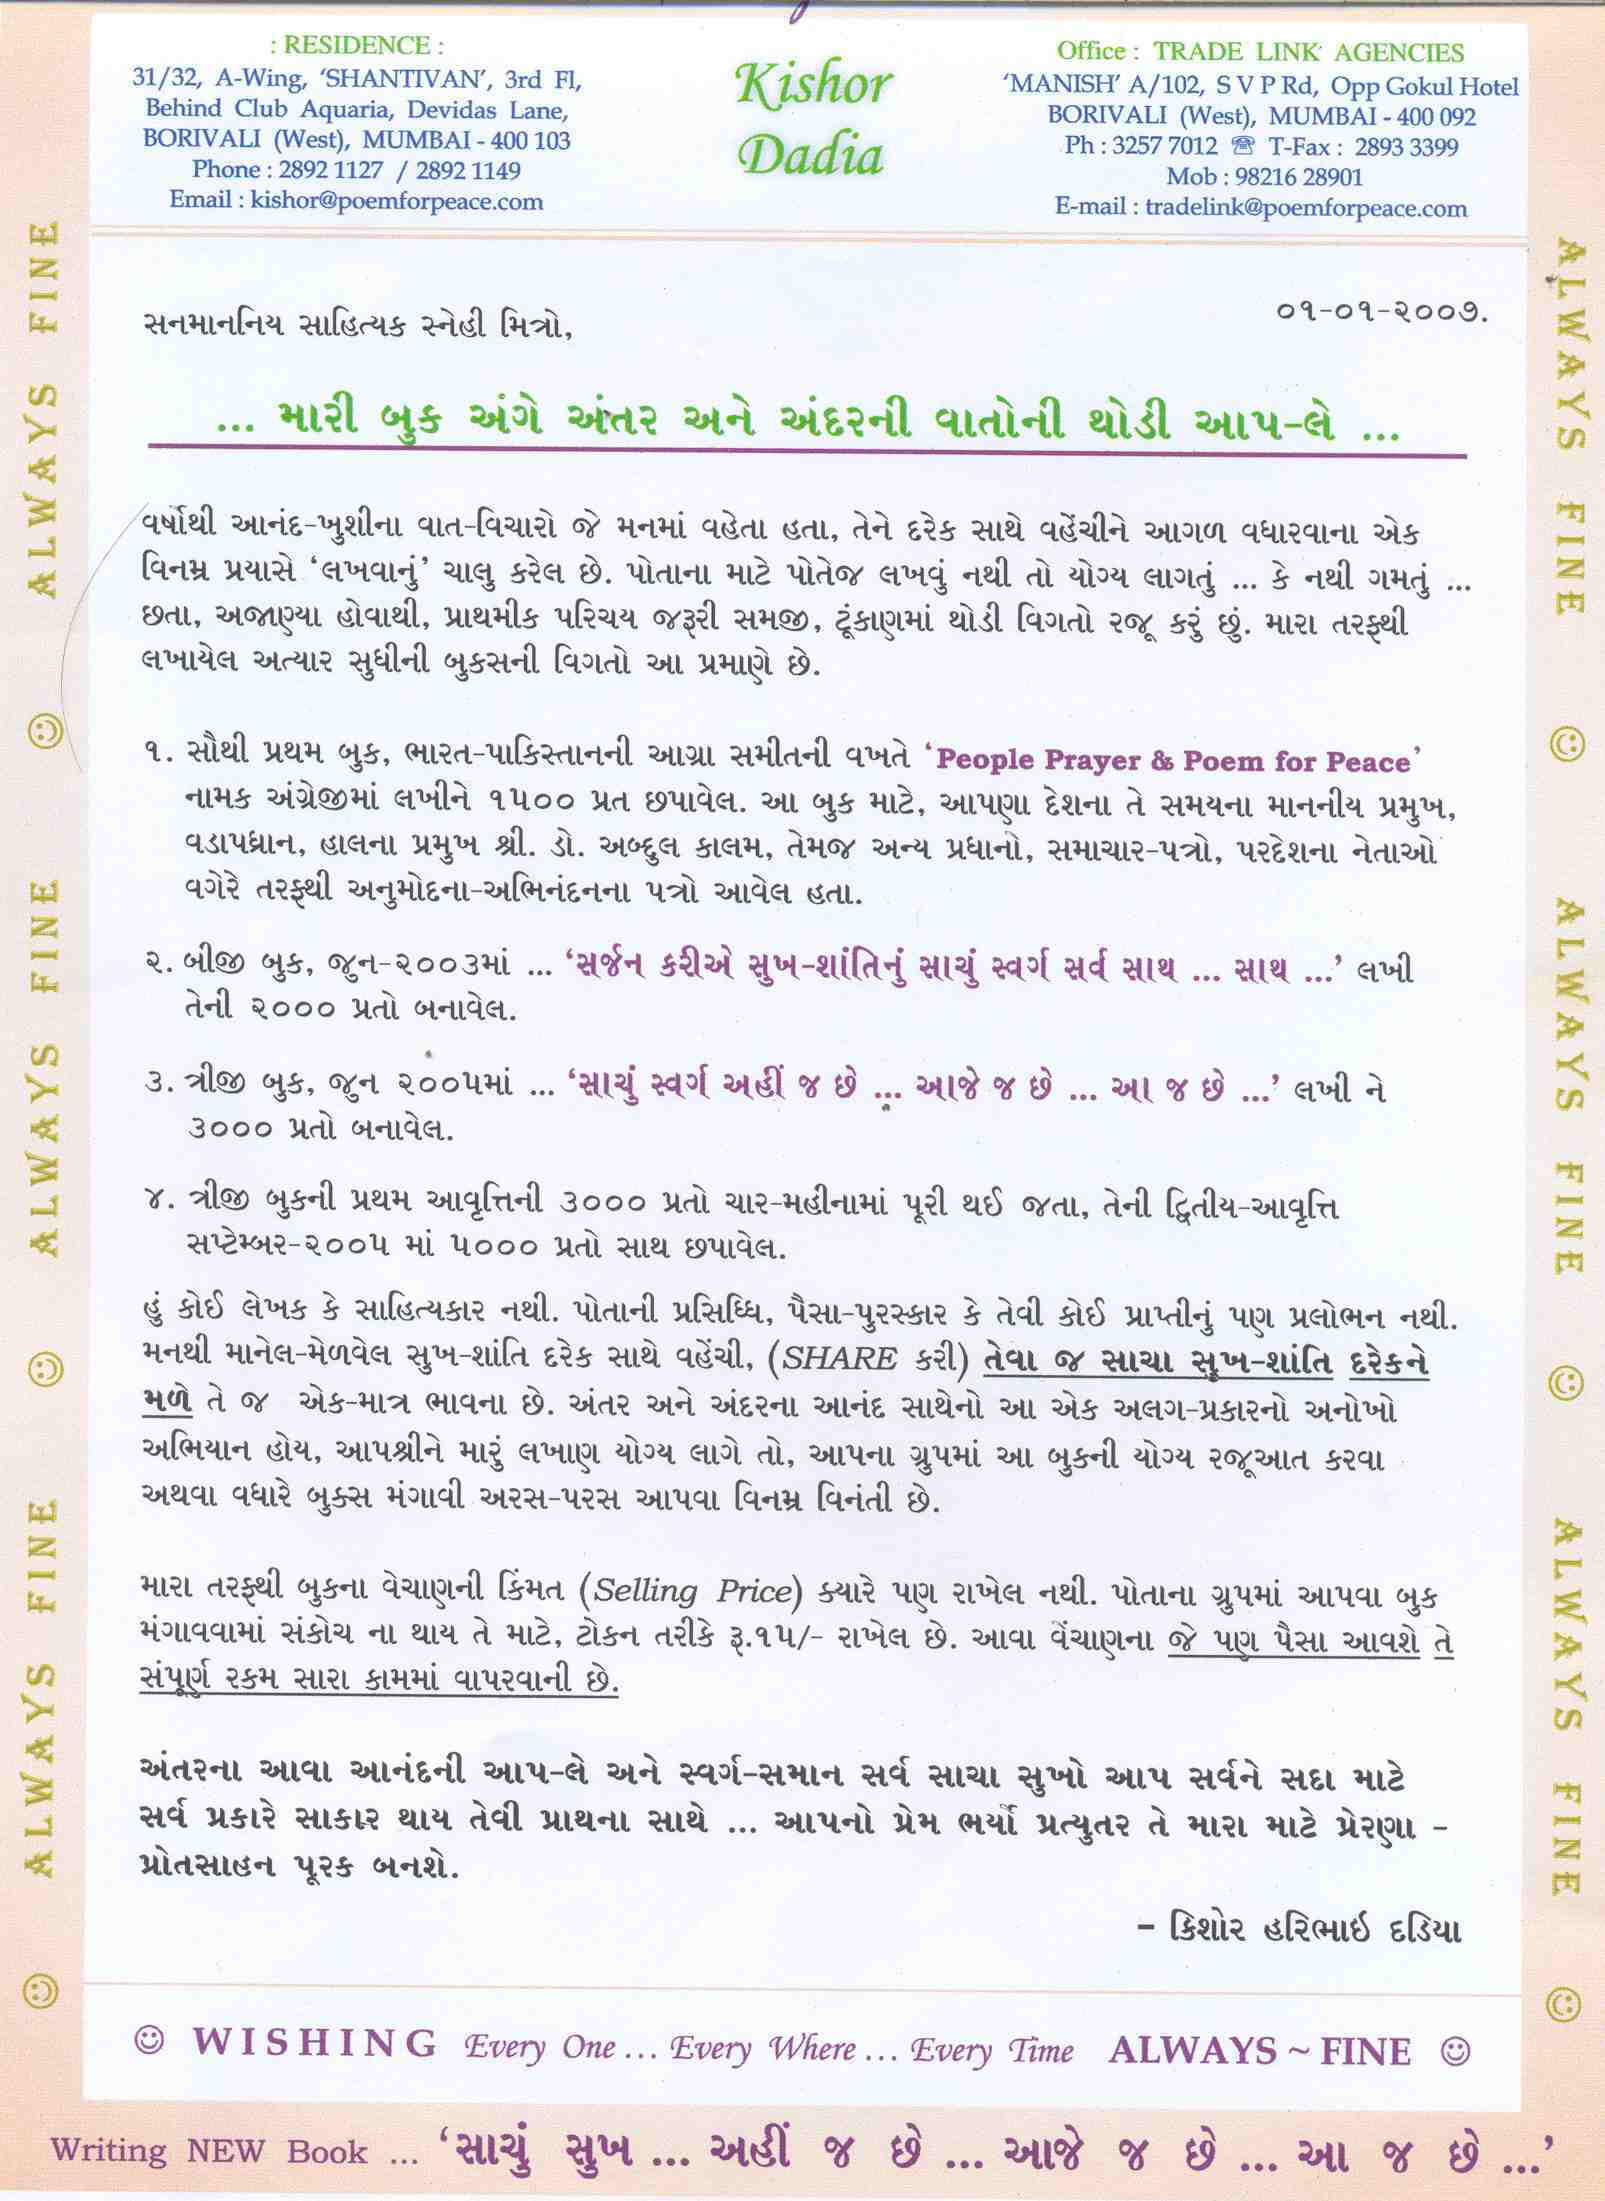 : RESIDENCE :
31/32, A-Wing, 'SHANTIVAN', 3rd Fl,
Behind Club Aquaria, Devidas Lane,
BORIVALI (West), MUMBAI - 400 103
Phone : 2892 1127 / 2892 1149
Email : kishor@poemforpeace.com
Kishor
Dadia
Office : TRADE LINK AGENCIES
'MANISH' A/102, S V P Rd, Opp Gokul Hotel
BORIVALI (West), MUMBAI - 400 092
Ph : 3257 7012 ☎ T-Fax : 2893 3399
Mob : 98216 28901
E-mail : tradelink@poemforpeace.com
૦૧-૦૧-૨૦૦૭.
સનમાનનિય સાહિત્યક સ્નેહી મિત્રો,
... મારી બુક અંગે અંતર અને અંદરની વાતોની થોડી આપ-લે ...
વર્ષોથી આનંદ-ખુશીના વાત-વિચારો જે મનમાં વહેતા હતા, તેને દરેક સાથે વહેંચીને આગળ વધારવાના એક
વિનમ્ર પ્રયાસે 'લખવાનું' ચાલુ કરેલ છે. પોતાના માટે પોતેજ લખવું નથી તો યોગ્ય લાગતું ... કે નથી ગમતું ...
છતા, અજાણ્યા હોવાથી, પ્રાથમીક પરિચય જરૂરી સમજી, ટૂંકાણમાં થોડી વિગતો રજૂ કરું છું. મારા તરફથી
લખાયેલ અત્યાર સુધીની બુકસની વિગતો આ પ્રમાણે છે.
૧. સૌથી પ્રથમ બુક, ભારત-પાકિસ્તાનની આગ્રા સમીતની વખતે 'People Prayer & Poem for Peace'
નામક અંગ્રેજીમાં લખીને ૧૫૦૦ પ્રત છપાવેલ. આ બુક માટે, આપણા દેશના તે સમયના માનનીય પ્રમુખ,
વડાપધ્રાન, હાલના પ્રમુખ શ્રી. ડો. અબ્દુલ કાલમ, તેમજ અન્ય પ્રધાનો, સમાચાર-પત્રો, પરદેશના નેતાઓ
વગેરે તરફથી અનુમોદના-અભિનંદનના પત્રો આવેલ હતા.
૨. બીજી બુક, જુન-૨૦૦૩માં ... 'સર્જન કરીએ સુખ-શાંતિનું સાચું સ્વર્ગ સર્વ સાથ ... સાથ ...' લખી
તેની ૨૦૦૦ પ્રતો બનાવેલ.
૩. ત્રીજી બુક, જુન ૨૦૦૫માં ... 'સાચું સ્વર્ગ અહીં જ છે ... આજે જ છે ... આ જ છે ...' લખી ને
૩૦૦૦ પ્રતો બનાવેલ.
૪. ત્રીજી બુકની પ્રથમ આવૃત્તિની ૩૦૦૦ પ્રતો ચાર-મહીનામાં પૂરી થઈ જતા, તેની દ્વિતીય-આવૃત્તિ
સપ્ટેમ્બર-૨૦૦૫ માં ૫૦૦૦ પ્રતો સાથ છપાવેલ.
હું કોઈ લેખક કે સાહિત્યકાર નથી. પોતાની પ્રસિધ્ધિ, પૈસા-પુરસ્કાર કે તેવી કોઈ પ્રાપ્તીનું પણ પ્રલોભન નથી.
મનથી માનેલ-મેળવેલ સુખ-શાંતિ દરેક સાથે વહેંચી, (SHARE કરી) તેવા જ સાચા સુખ-શાંતિ દરેકને
મળે તે જ એક-માત્ર ભાવના છે. અંતર અને અંદરના આનંદ સાથેનો આ એક અલગ-પ્રકારનો અનોખો
અભિયાન હોય, આપશ્રીને મારું લખાણ યોગ્ય લાગે તો, આપના ગ્રુપમાં આ બુકની યોગ્ય રજૂઆત કરવા
અથવા વધારે બુક્સ મંગાવી અરસ-પરસ આપવા વિનમ્ર વિનંતી છે.
મારા તરફથી બુકના વેચાણની કિંમત (Selling Price) ક્યારે પણ રાખેલ નથી. પોતાના ગ્રુપમાં આપવા બુક
મંગાવવામાં સંકોચ ના થાય તે માટે, ટોકન તરીકે રૂ.૧૫/- રાખેલ છે. આવા વેંચાણના જે પણ પૈસા આવશે તે
સંપૂર્ણ રકમ સારા કામમાં વાપરવાની છે.
અંતરના આવા આનંદની આપ-લે અને સ્વર્ગ-સમાન સર્વ સાચા સુખો આપ સર્વને સદા માટે
સર્વ પ્રકારે સાકાર થાય તેવી પ્રાથના સાથે ... આપનો પ્રેમ ભર્યો પ્રત્યુતર તે મારા માટે પ્રેરણા -
પ્રોતસાહન પૂરક બનશે.
- કિશોર હરિભાઇ દડિયા
☺ WISHING Every One ... Every Where ... Every Time ALWAYS ~ FINE ☺
Writing NEW Book ... 'સાચું સુખ ... અહીં જ છે ... આજે જ છે ... આ જ છે ...'
ALWAYS FINE ☺ ALWAYS FINE ☺ ALWAYS FINE ☺
ALWAYS FINE ☺ ALWAYS FINE ☺ ALWAYS FINE ☺